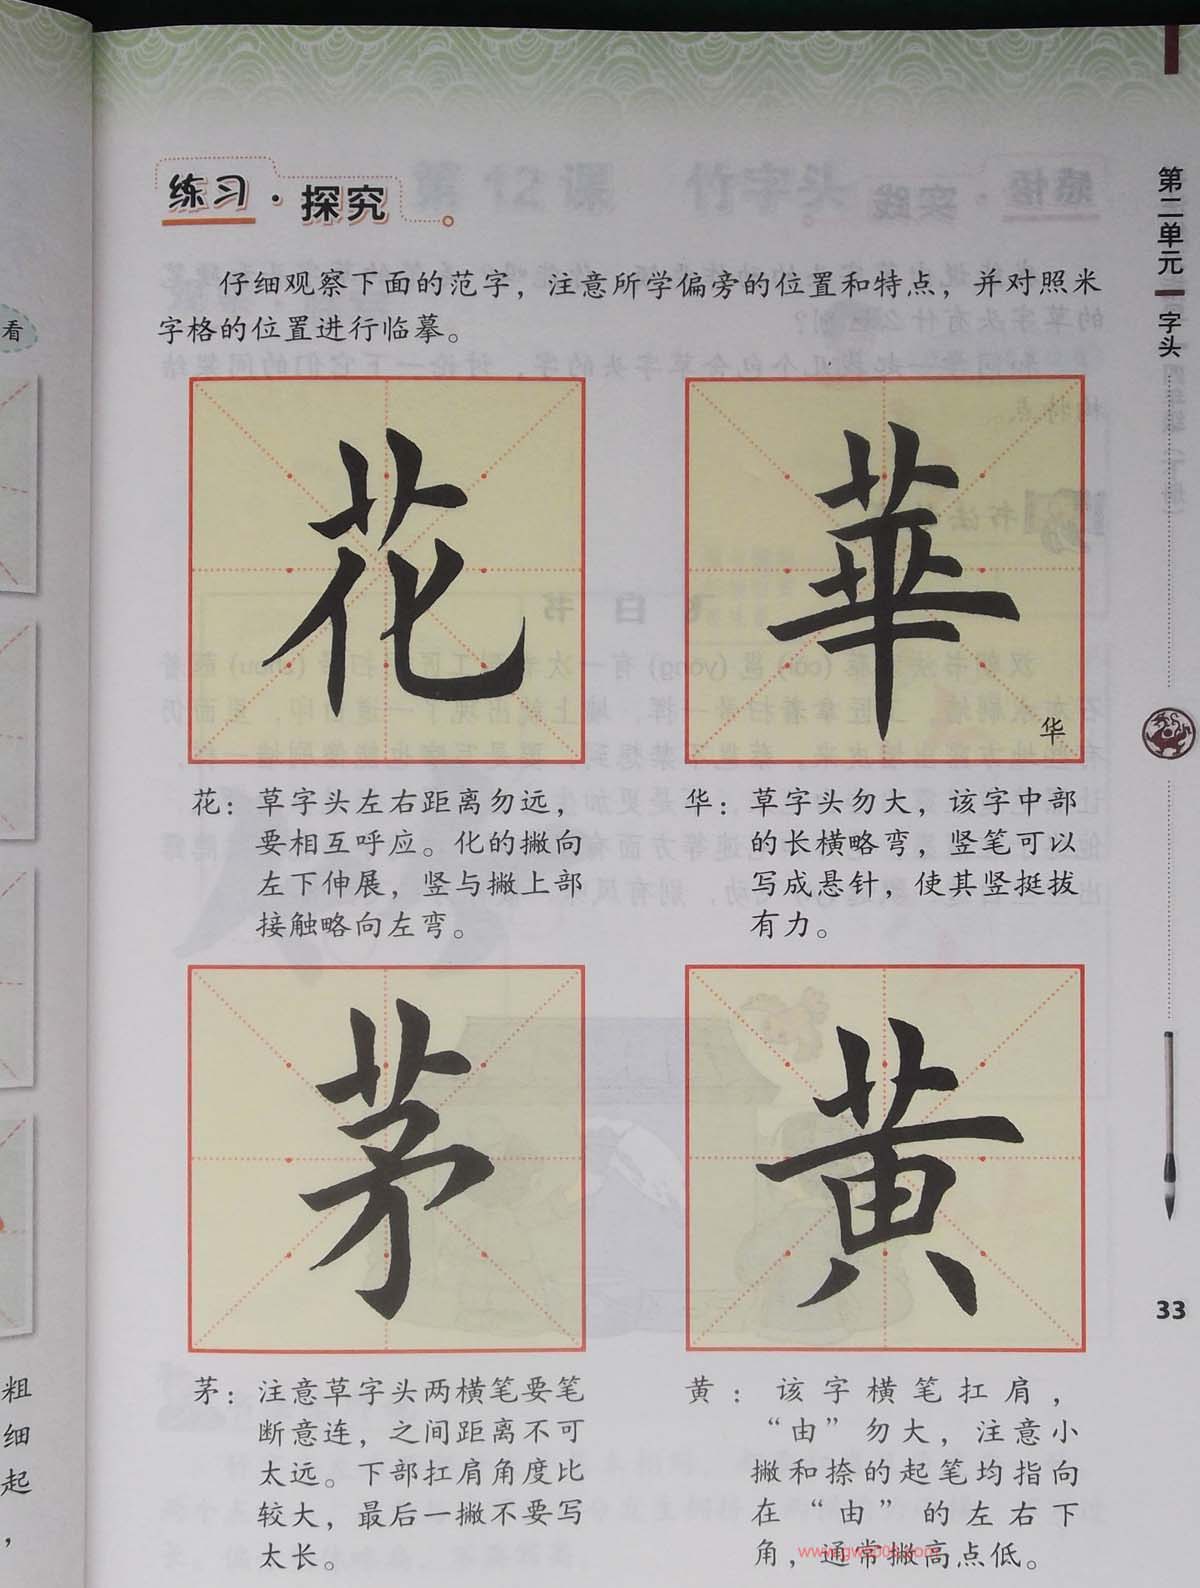 练习·探究
仔细观察下面的范字，注意所学偏旁的位置和特点，并对照米
字格的位置进行临摹。
花
華
华
花：草字头左右距离勿远，
要相互呼应。化的撇向
左下伸展，竖与撇上部
接触略向左弯。
华：草字头勿大，该字中部
的长横略弯，竖笔可以
写成悬针，使其竖挺拔
有力。
茅
黄
茅：注意草字头两横笔要笔
断意连，之间距离不可
太远。下部扛肩角度比
较大，最后一撇不要写
太长。
黄：该字横笔扛肩，
“由”勿大，注意小
撇和捺的起笔均指向
在“由”的左右下
角，通常撇高点低。
第二单元 字头
33
看
粗
细
起
，